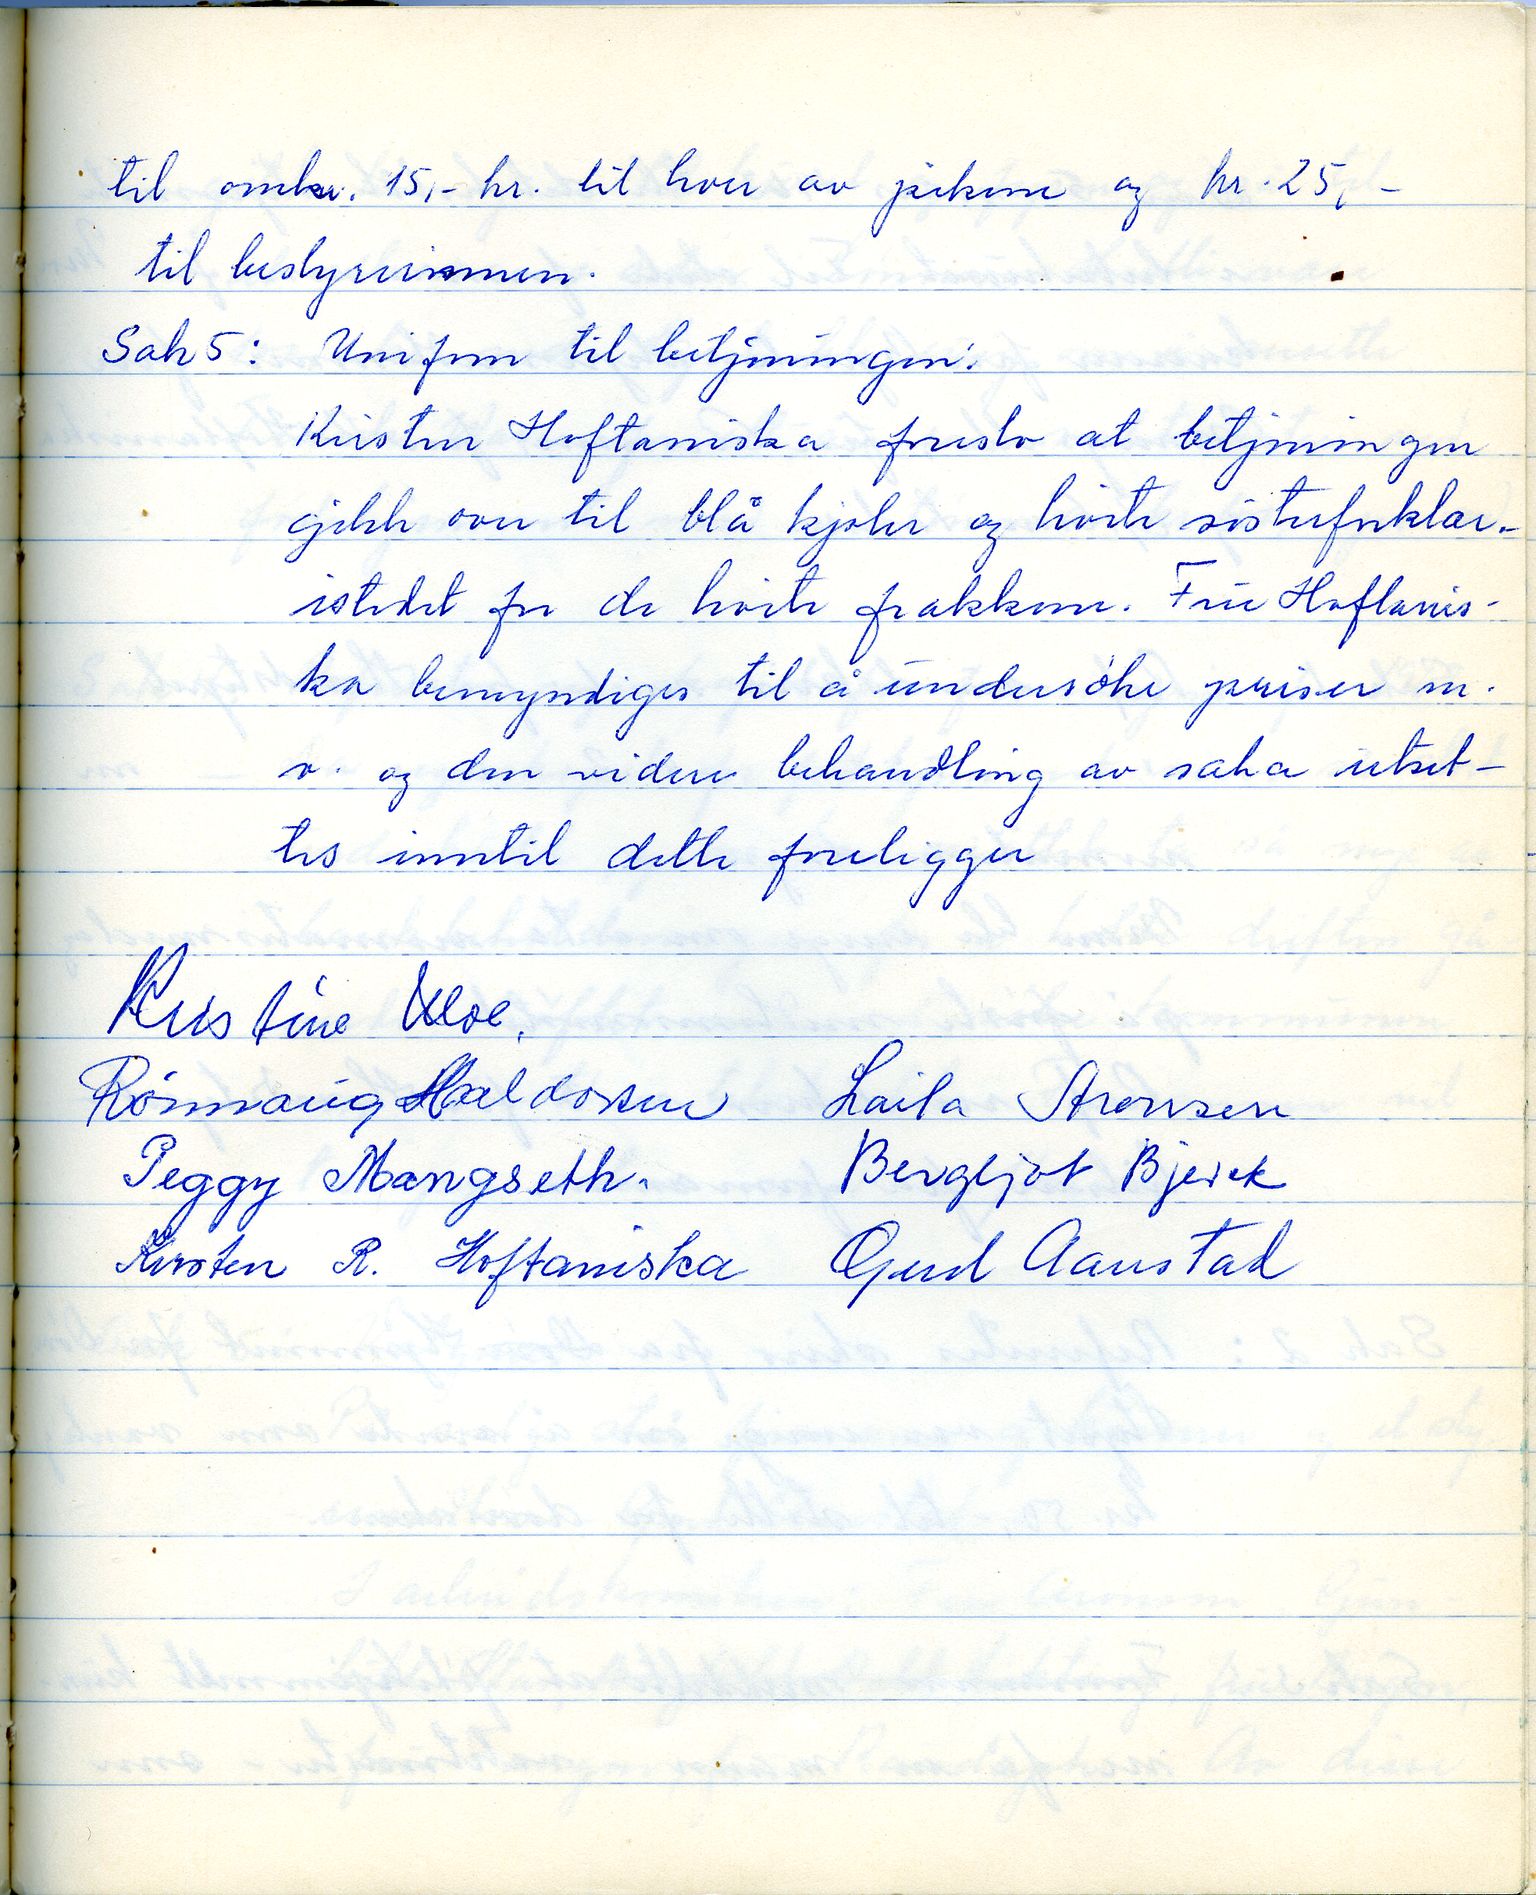 til omkr. 15,- kr. til hver av pikene og kr. 25,-
til bestyrerinnen.
Sak 5: Uniform til betjeningen:
Kirsten Hoftaniska foreslo at betjeningen
gikk over til blå kjoler og hvite søsterforklær
istedet for de hvite frakkene. Frue Hoftanis-
ka bemyndiges til å undersöke priser m.
v. og den videre behandling av saka utset-
tes inntil dette foreligger
Kristine Moe.
Rönnaug Haldorsen Laila Arensen
Peggy Mangseth. Bergljot Bjerck
Kirsten R. Hoftaniska Gerd Aanstad